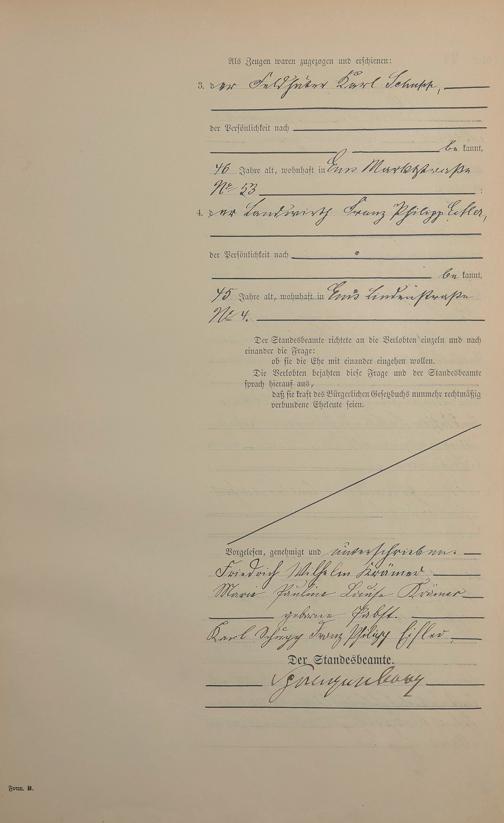 Als Zeugen waren zugezogen und erschienen:
3. der Feldhüter Karl Schupp,
der Persönlichkeit nach
be kannt,
46 Jahre alt, wohnhaft in Ems Marktstraße
No 53 ;
4. der Landwirth Franz Philipp Eisler,
der Persönlichkeit nach
be kannt,
45 Jahre alt, wohnhaft in Ems Lindenstraße
No 4.
Der Standesbeamte richtete an die Verlobten einzeln und nach
einander die Frage:
ob sie die Ehe mit einander eingehen wollen.
Die Verlobten bejahten diese Frage und der Standesbeamte
sprach hierauf aus,
daß sie kraft des Bürgerlichen Gesetzbuchs nunmehr rechtmäßig
verbundene Eheleute seien.
Vorgelesen, genehmigt und unterschrieben.
Friedrich Wilhelm Krämer
Marie Pauline Louise Krämer
geborene Pabst.
Karl Schupp Franz Philipp Eisler
Der Standesbeamte.
Form. B.